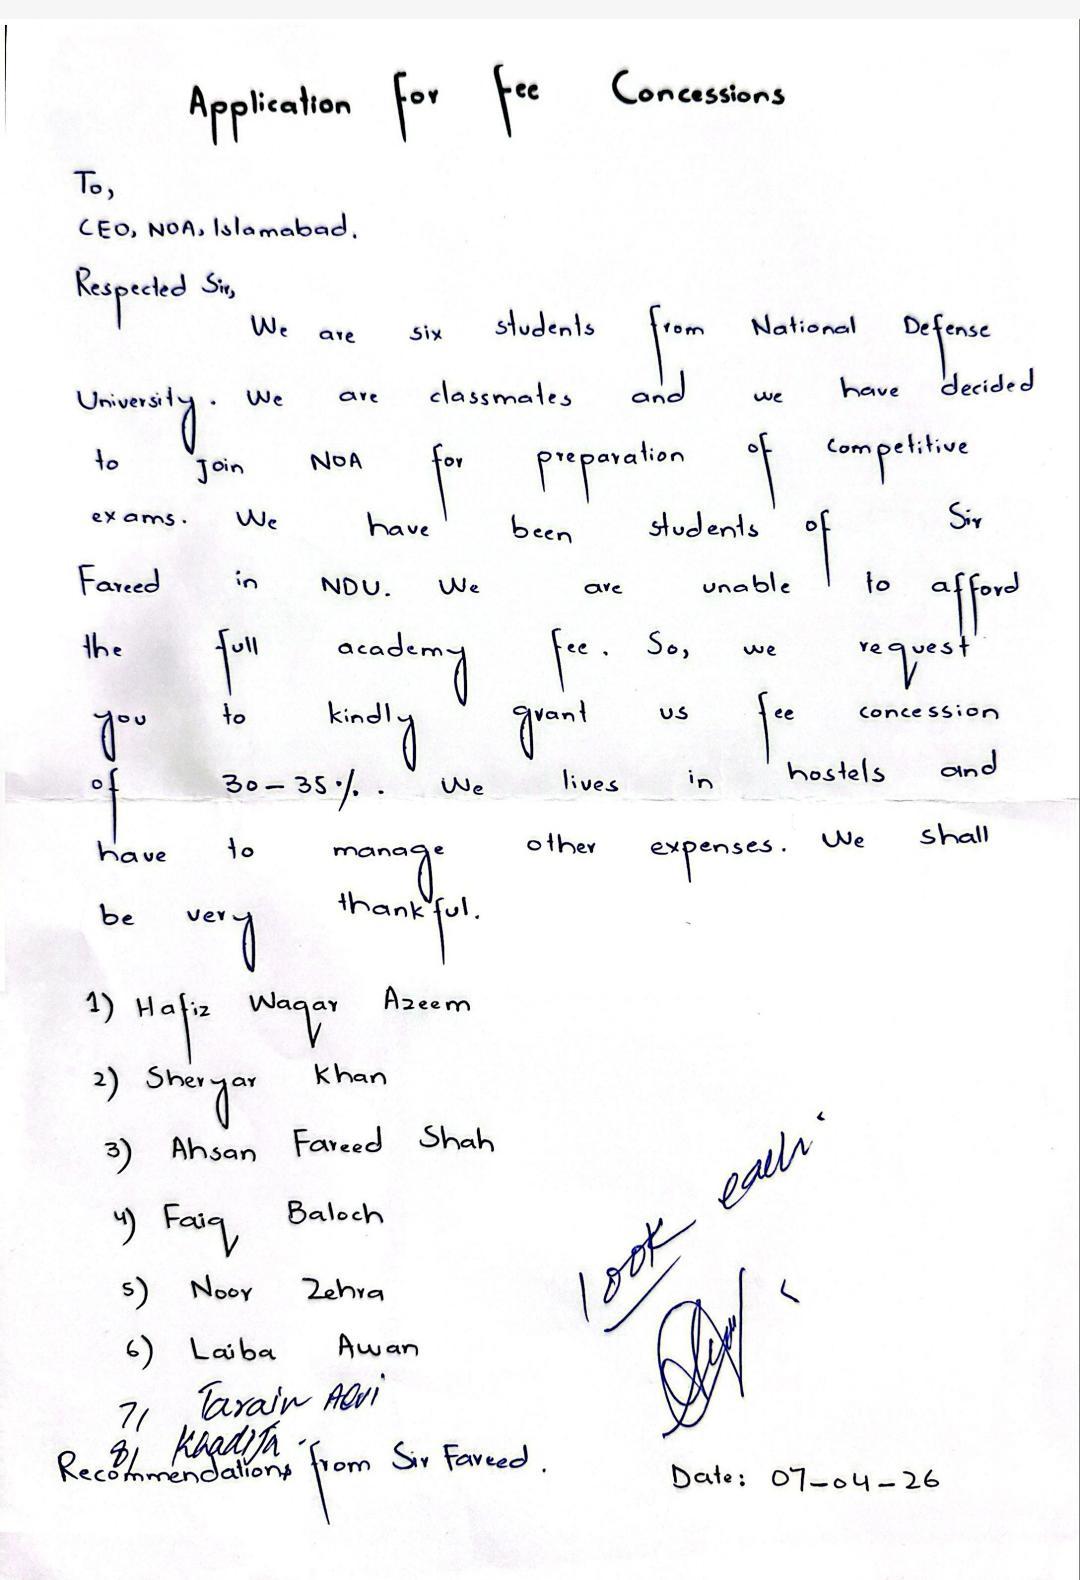 Application for fee Concessions
To,
CEO, NOA, Islamabad.
Respected Sir,
We are six students from National Defense
University. We are classmates and we have decided
to join NOA for preparation of competitive
exams. We have been students of Sir
Fareed in NDU. We are unable to afford
the full academy fee. So, we request
you to kindly grant us fee concession
of 30-35%. We lives in hostels and
have to manage other expenses. We shall
be very thankful.
1) Hafiz Waqar Azeem
2) Sheryar Khan
3) Ahsan Fareed Shah
4) Faiq Baloch
5) Noor Zehra
6) Laiba Awan
7/ Alvi
8/ Khadija
100K each
Recommendations from Sir Fareed.
Date: 07-04-26